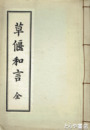 草偃和言 全